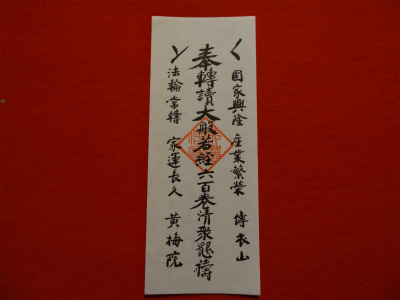 國家興隆 産業繁榮 傳衣山
奉轉讀大般若経六百巻清衆懇祷
法輪常轉 家運長久 黄梅院